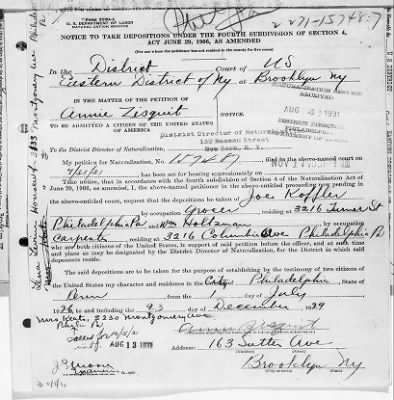 Form 2230-J
U. S. DEPARTMENT OF LABOR
NATURALIZATION SERVICE
Phil
2271-15748-7
NOTICE TO TAKE DEPOSITIONS UNDER THE FOURTH SUBDIVISION OF SECTION 4,
ACT JUNE 29, 1906, AS AMENDED
In the District Court of US
Eastern District of Ny at Brooklyn Ny
NATURALIZATION SERVICE
RECEIVED
AUG 1931
DISTRICT DIRECTOR
PHILADELPHIA
IN THE MATTER OF THE PETITION OF
Annie Zisquit
NOTICE.
TO BE ADMITTED A CITIZEN OF THE UNITED STATES
OF AMERICA
District Director of Naturalization
132 Nassau Street
To the District Director of Naturalization, New York, N. Y.
My petition for Naturalization, No. filed in the above-named court on
7/21/31 has been set for hearing approximately on NOV 2
Take notice that, in accordance with the fourth subdivision of section 4 of the Naturalization Act of
June 29, 1906, as amended, I, the above-named petitioner in the above-entitled proceeding now pending in
the above-named court, request that the depositions be taken of Joe Koffler
by occupation Grocer, residing at 3216 Turner St
Philadelphia Pa and Wm Holtzman by occupation
Carpenter, residing at 3216 Columbia Ave Philadelphia Pa
who are both citizens of the United States, in support of said petition before the officer, and at such time and
place as may be designated by the District Director of Naturalization, for the District in which said
deponents reside.
The said depositions are to be taken for the purpose of establishing by the testimony of two citizens of
the United States my character and residence in the City of Philadelphia, State of
Penn from the 1 day of July
1926, to and including the 23 day of December 1929
Mrs 3230 Montgomery Ave
Phila Pa
AUG 13 1931
Annie Zisquit
Address: 163 Sutter Ave
(Number) (Street)
Brooklyn Ny
(City or town) (State)
Lena Levin Housewf. 3233 Montgomery Ave Phila